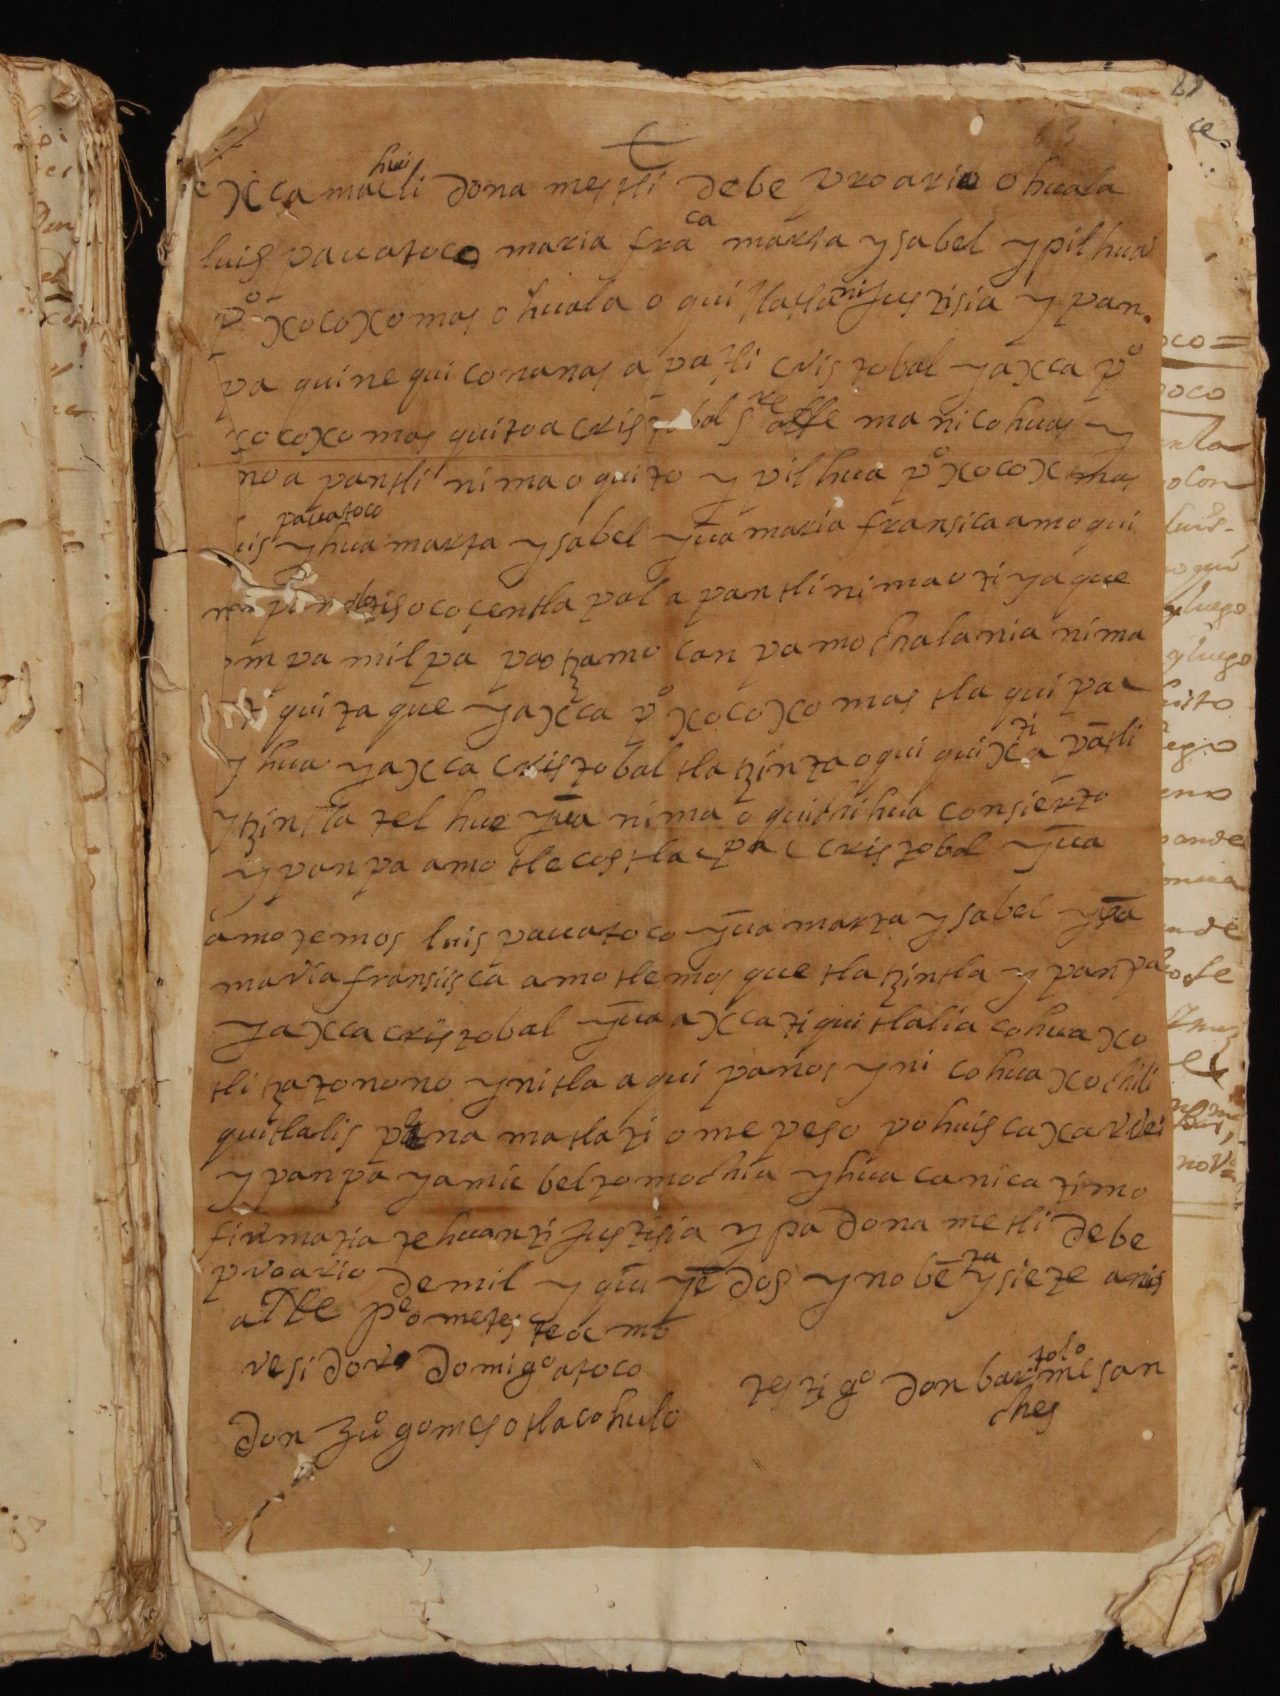 axcamachuili dona mestli debe vroario ohuala
luis pauatoco maria fraca marta ysabel ypilhua
po xocoxomos ohuala o quitlatlani justisia y pan
pa quinequiconanas apatli cristobal yaxca po
xocoxomos quitoa cristobal manicohuas y
noapantli nima o quito y pilhua po xocoxomos
luis pauatoco yhua marta ysabel yua maria fransica amo qui
sococentlapal apantli nima oti yaque
ompa milpa pa tzamo canpa mochalania nima
ti quitaque yaxca po xocoxomos tla quipac
yhua yaxca cristobal tlatzinta oqui quixti apatli
ytzintla telhue yua nima o quichihua consierto
ypanpa amo tlecos tlacpac cristobal yua
amo temos luis pauatoco yua marta ysabel yua
maria fransisca amo tlemos que tlatzintla y panpa
yaxca cristobal yua axca ti quitlalia cohuaxo
tli tzatonono ynitlaaqui panos yni cohuaxochili
quitlalis pena matlati ome peso pohuis caxa rrei
ypanpa yamic beltomochia yhua canica timo
firmatia tehuanti justisia ypa dona metli debe
vroario demil y yedos y nobetaysiete anis
peo metes teamo
resi dor domigo atoco
testigo don bartolome san
ches
don juo gomes otlacohulo